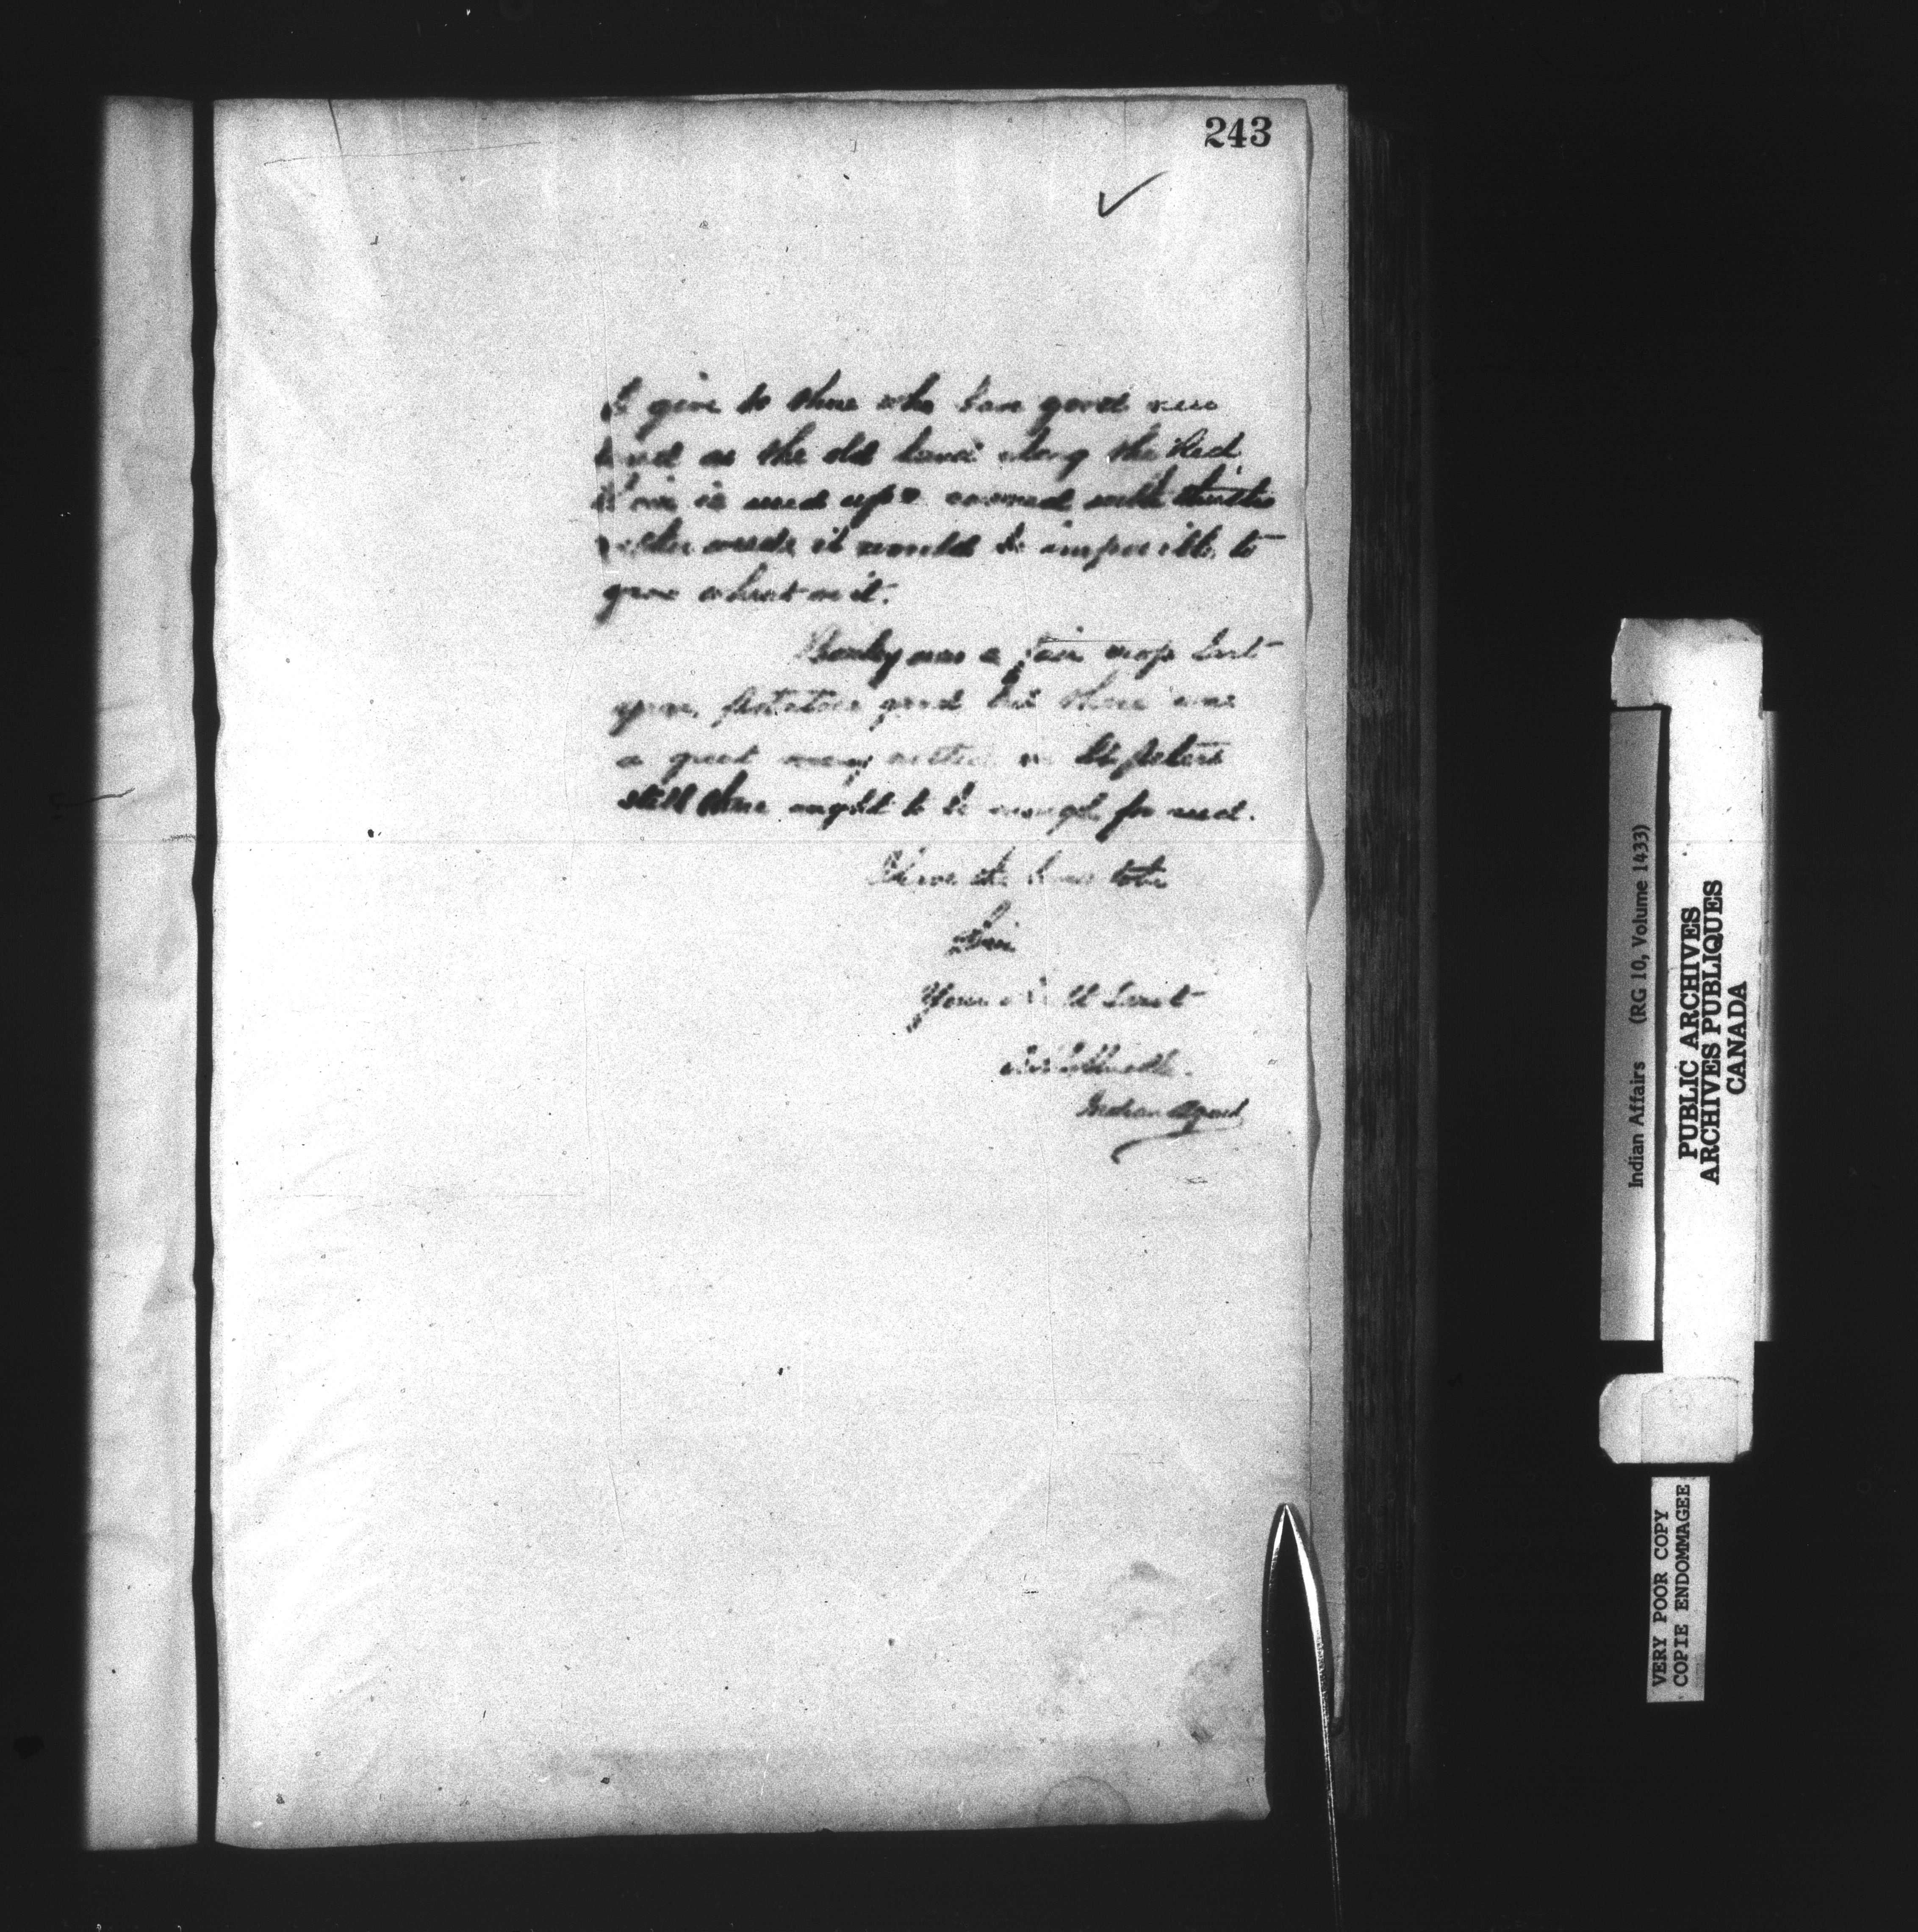 243
to give to those who have good new
land as the old land along the Red
River is used up & covered with thistles
& other weeds it would be impossible to
grow wheat on it.
Barley was a fair crop last
year, potatoes good but there were
a great many rotted in St Peters
still there ought to be enough for seed.
I have the honor to be
Sir
Your obdt Servt
Indian Agent
Indian Affairs (RG 10, Volume 1433)
PUBLIC ARCHIVES
ARCHIVES PUBLIQUES
CANADA
VERY POOR COPY
COPIE ENDOMMAGEE